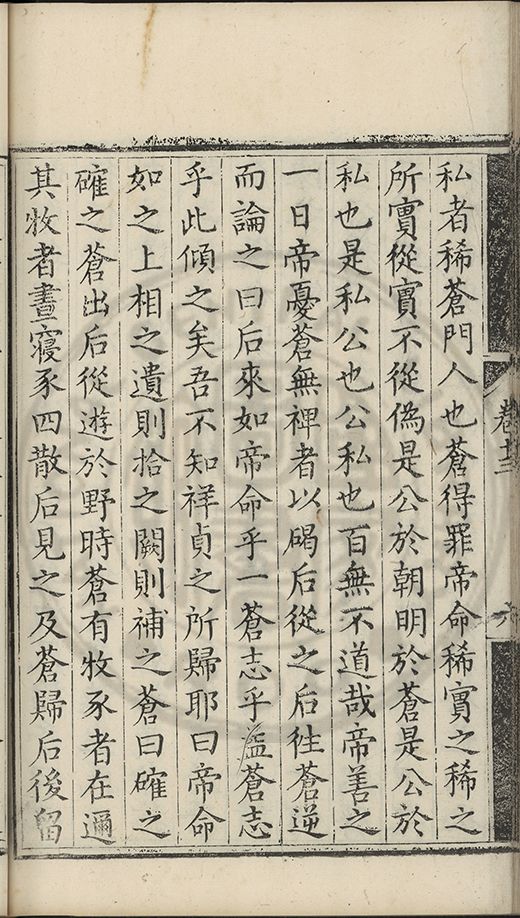 私者稀蒼門人也蒼得罪帝命稀實之稀之
所實從實不從偽是公於朝明於蒼是公於
私也是私公也公私也百無不道哉帝善之
一日帝憂蒼無裨者以碣后從之后徃蒼逆
而論之曰后來如帝命乎一蒼志乎盖蒼志
乎此傾之矣吾不知祥貞之所歸耶曰帝命
如之上相之遺則拾之闕則補之蒼曰確之
確之蒼出后從遊於野時蒼有牧豕者在邇
其牧者晝寢豕四散后見之及蒼歸后後留
卷十三
六